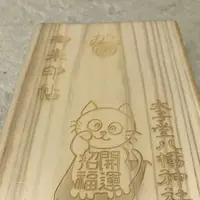 御朱印帖
太子堂八幡神社
開運
招福